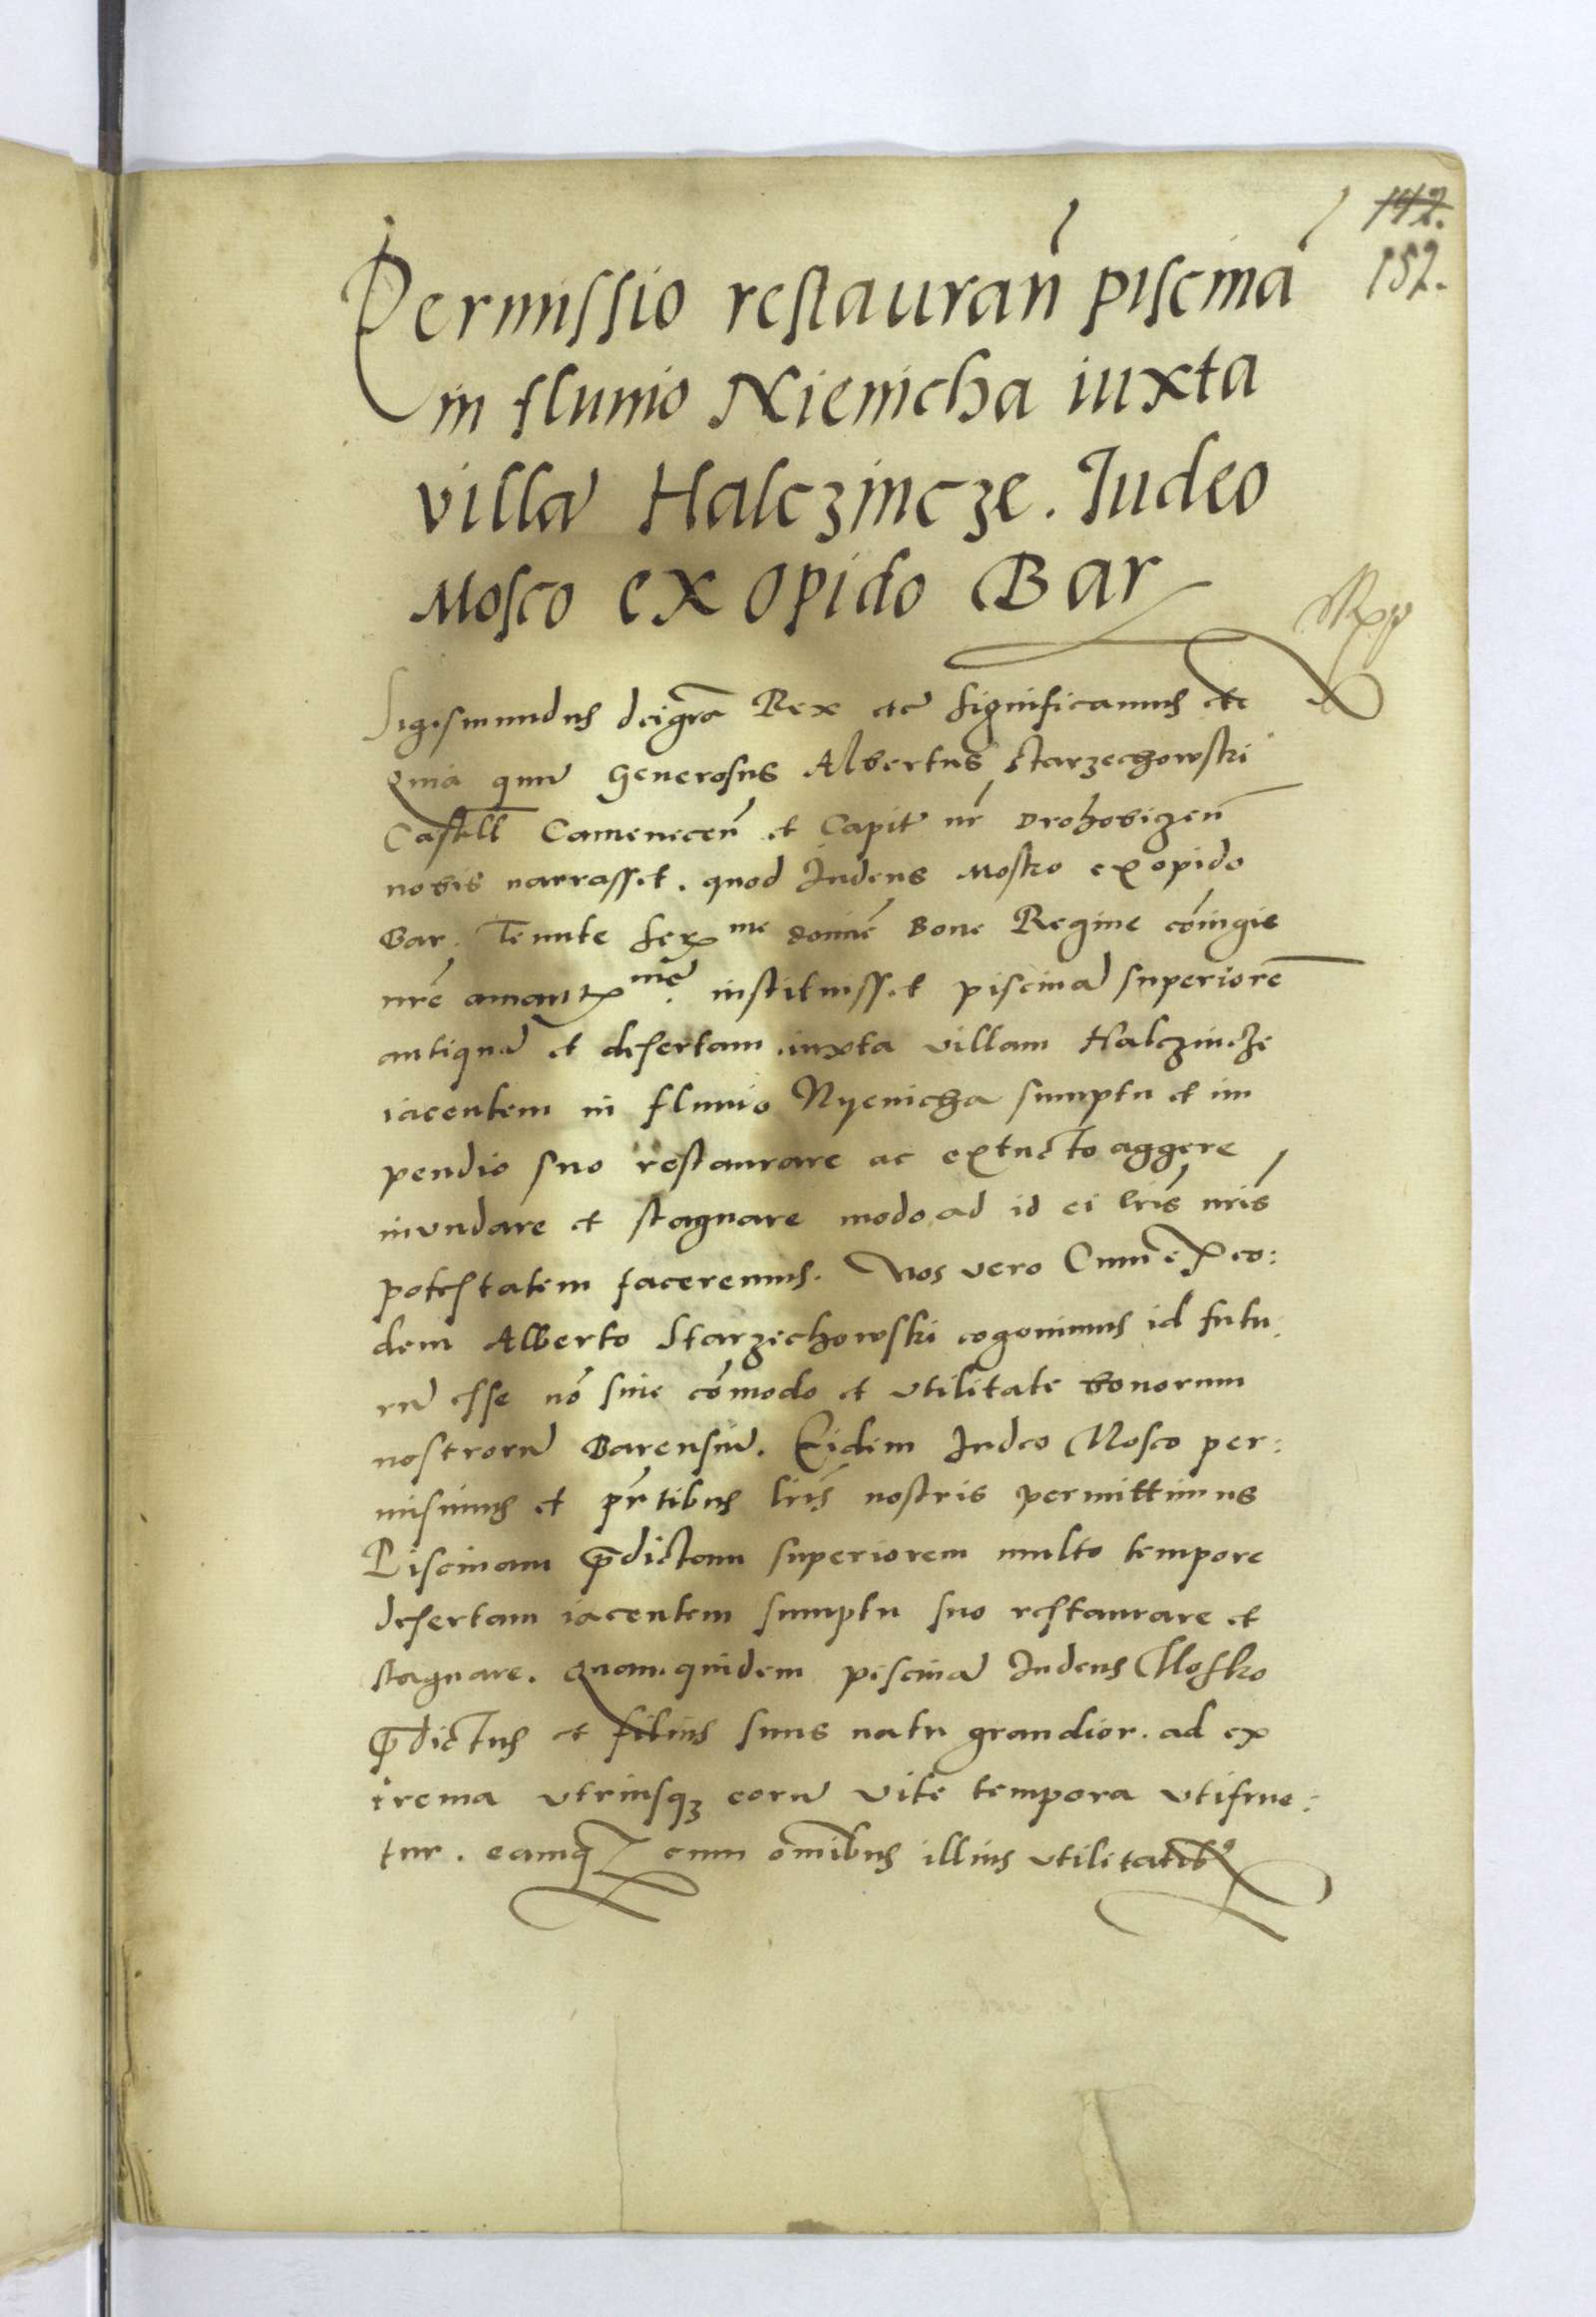 142.
152.
Permissio restauran̄ piscinā
in fluuio Nienicha iuxta
villā Halczincze. Iudeo
Mosco ex opido Bar
Sigismundus dei gr̄a Rex etc̄ significamus etc
Quia quū Generosus Albertus Starzechowski
Castell̄ Camenecen̄ et Capit̄ nr̄ Drohobiczen̄
nobis narrasset. quod Iudeus Mosko ex opido
Bar. Tenute ser̄me domine Bone Regine cōiugis
nrē amantme. instituisset piscinā superiorē
antiquā et desertam iuxta villam Halczincze
iacentem in fluuio Nyenicha sumptu et im
pendio suo restaurare ac extructo aggere
inundare et stagnare modo ad id ei lrīs nrīs
potestatem faceremus. Nos vero Cum ex eo:
dem Alberto Starzechowski cognouimus id futu:
rū esse nō sine cōmodo et vtilitate bonorum
nostrorū Barensiū. Eidem Iudeo Mosco per:
misimus et pn̄tibus lrīs nostris permittimus
Piscinam p̄dictam superiorem multo tempore
desertam iacentem sumptu suo restaurare et
stagnare. Quam quidem piscinā Iudeus Mosko
p̄dictus et filius suus natu grandior. ad ex
trema vtriusqꝫ eorū vite tempora vtifrue:
tur. eamqꝫ cum om̄ibus illius vtilitatibꝰ